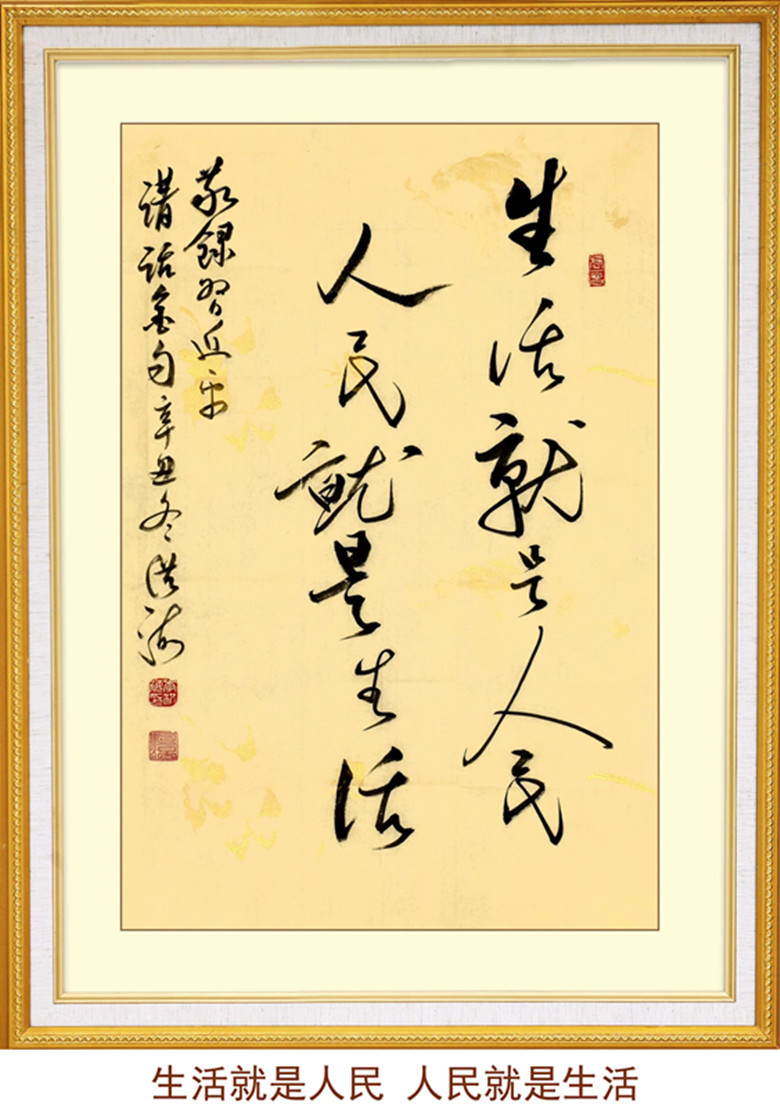 生活就是人民
人民就是生活
敬録习近平
讲话金句辛丑冬洪
生活就是人民 人民就是生活